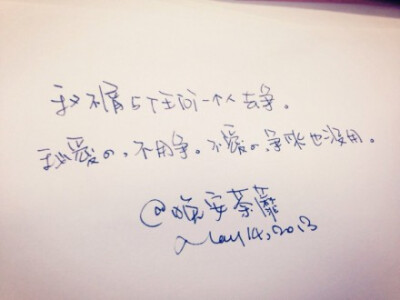 我不屑与任何一个人去争。
我愛の，不用争。不愛の争来也没用。
@晚安荼蘼
May 14, 2013